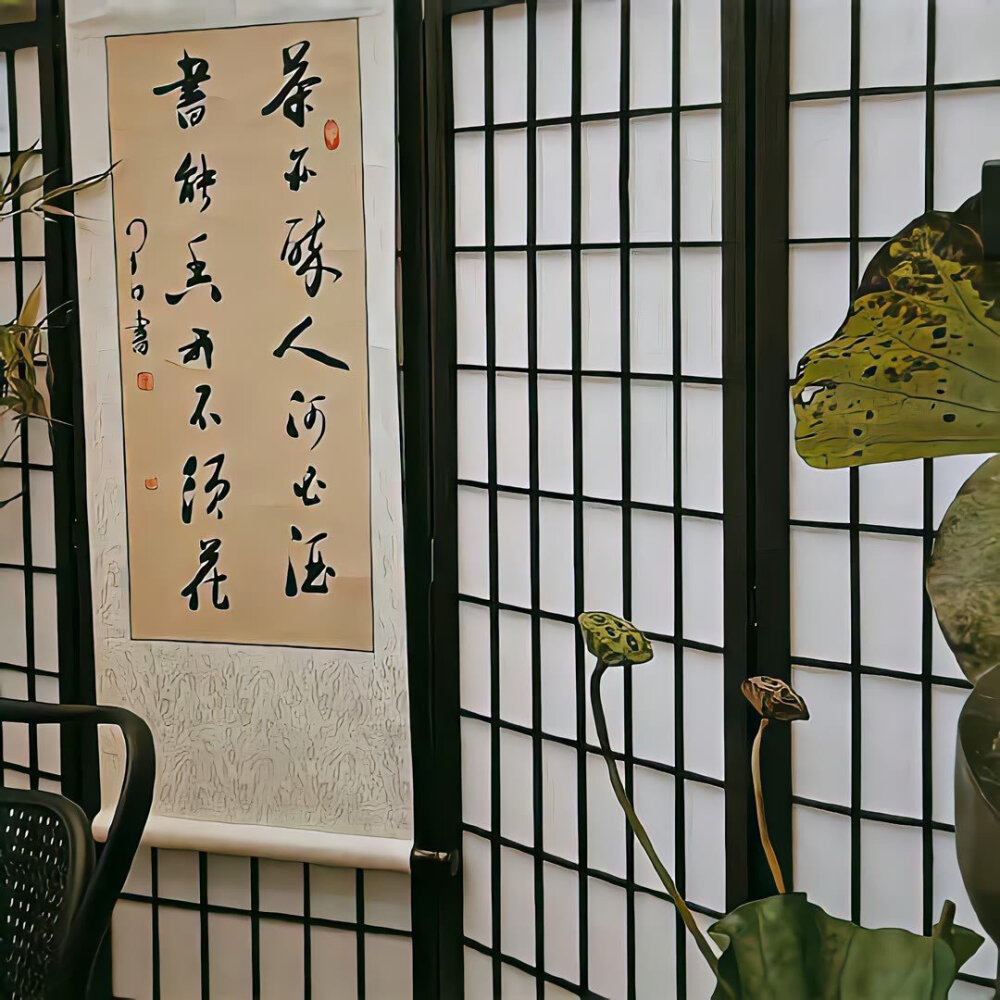 茶亦醉人何必酒
書能香我不須花
書